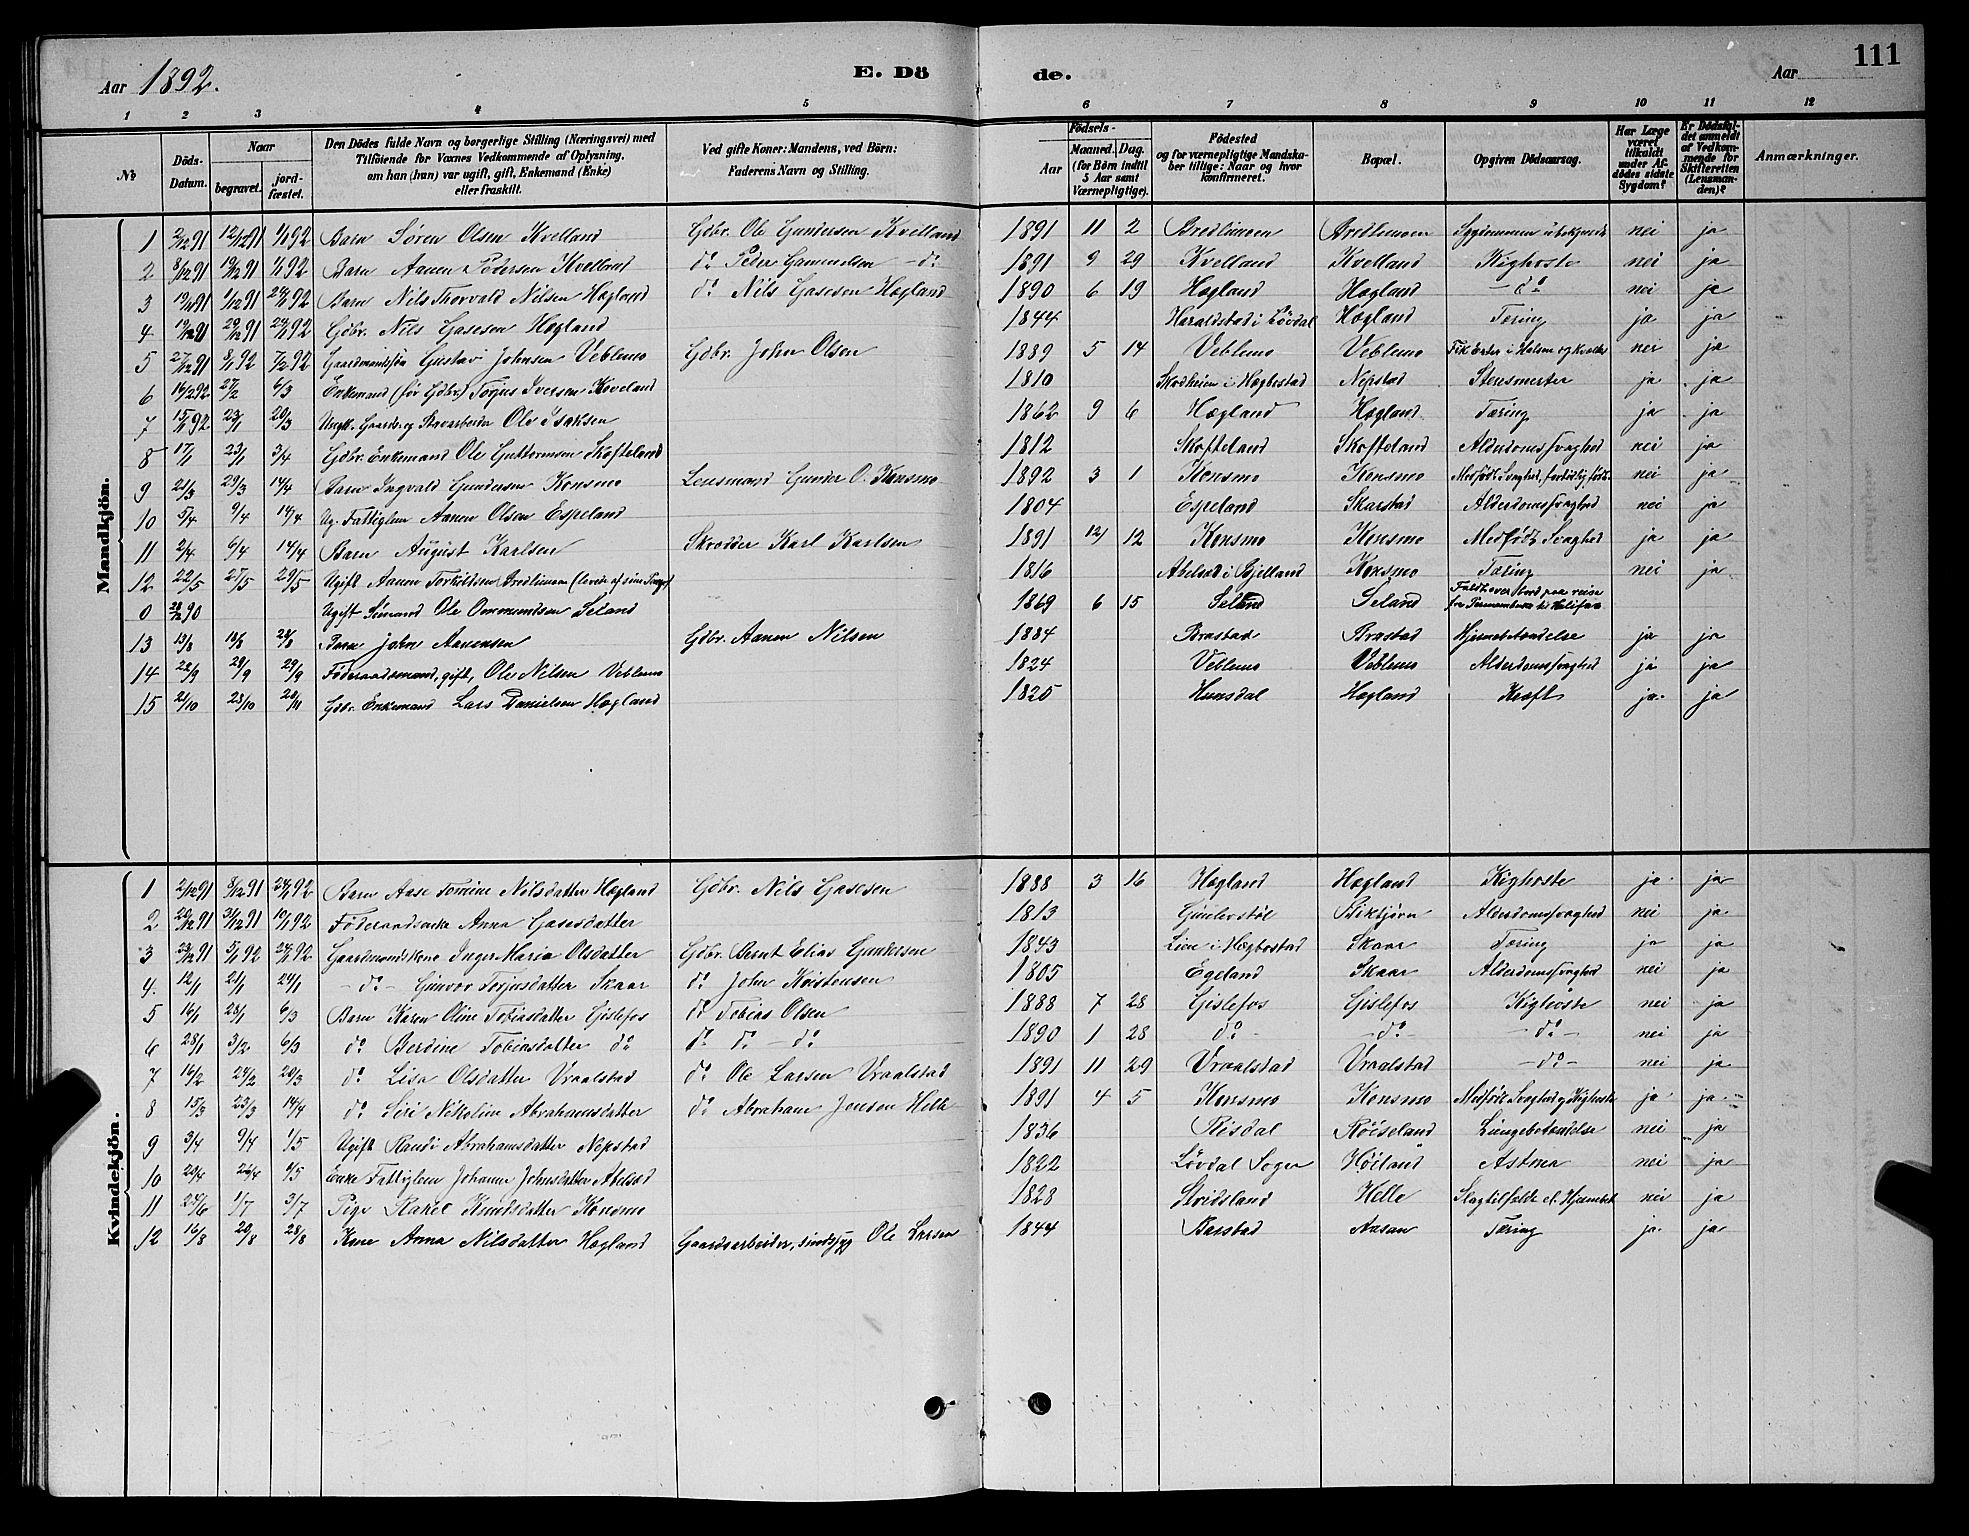 Aar 1892.
E. Dö
de.
Aar
111
1 2 3 4 5 6 7 8 9 10 11 12
No
Döds-Datum.
Naar
begravet.
jord-fæstet.
Den Dödes fulde Navn og borgerlige Stilling (Næringsvei) med
Tilföiende for Voxnes Vedkommende af Oplysning,
om han (hun) var ugift, gift, Enkemand (Enke)
eller fraskilt.
Ved gifte Koner: Mandens, ved Börn:
Faderens Navn og Stilling.
Födsels-
Aar
Maaned. Dag.
(for Börn indtil
5 Aar samt
Værnepligtige).
Födested
og for værnepligtige Mandska-
ber tillige: Naar og hvor
konfirmeret.
Bopæl.
Opgiven Dödsaarsag.
Har Læge
været
tilkaldt
under Af-
dödes sidste
Sygdom?
Er Dödsfal-
det anmeldt
af Vedkom-
mende for
Skifteretten
(Lensman-
den)?
Anmærkninger.
Mandkjön.
1 2/12 91 12/12 91 1/1 92 Barn Sören Olsen Kvelland Gdbr. Ole Gundersen Kvelland 1891 11 2 Bredlimoen Bredlimoen Sygdommen ubekjendt nei ja
2 8/12 91 19/12 91 1/1 92 Barn Aanen Pedersen Kvelland do Peder Gammelsen - do 1891 9 29 Kvelland Kvelland Kighoste nei ja
3 1/12 91 24/1 92 Barn Nils Thorvald Nilsen Hægland do Nils Gasesen Hægland 1890 6 19 Hægland Hægland - do nei ja
4 19/12 91 29/12 91 24/1 92 Gdbr. Nils Gasesen Hægland 1844 Haraldstad i Lövdal Hægland Tæring ja ja
5 27/12 91 8/1 92 7/2 92 Gaardmandssön Gustav Johnsen Veblemo Gdbr. John Olsen 1889 5 14 Veblemo Veblemo Fik Erter i Halsen og kvaltes nei ja
6 14/2 92 27/2 6/3 Enkemand (för Gdbr.) Torjus Iversen Koveland 1810 Skodheien i Hægbostad Nepstad Stensmerter ja ja
7 15/1 92 23/1 20/3 Ungk. Gaardbr. og Skovarbeider Ole Isaksen 1862 9 6 Hægland Hægland Tæring ja ja
8 17/1 23/1 3/4 Gdbr. Enkemand Ole Guttormsen Skofteland 1812 Skofteland Skofteland Alderdomssvaghed nei ja
9 21/3 29/3 14/4 Barn Ingvald Gundersen Konsmo Lensmand Gunder O. Konsmo 1892 3 1 Konsmo Konsmo Medfödt Svaghed, fortidlig födt nei ja
10 5/4 9/4 14/4 Ug. Fattiglem Aanen Olsen Espeland 1804 Espeland Skarstad Alderdomssvaghed nei ja
11 2/4 6/4 14/4 Barn August Karlsen Skrædder Karl Karlsen 1891 12 12 Konsmo Konsmo Medfödt Svaghed ja ja
12 22/5 27/5 29/5 Ugift Aanen Torkildsen Bredlimoen (levede af sine Penge) 1816 Abelsæd i Bjelland Konsmo Tæring nei ja
0 90 Ugift Sömand Ole Ommundsen Seland 1869 6 15 Seland Seland Faldt over bord paa reise fra Pernambuco til Halifax
13 13/8 18/8 28/8 Barn John Aanensen Gdbr. Aanen Nilsen 1884 Brastad Brastad Hjernebetændelse ja ja
14 22/9 29/9 29/9 Föderaadsmand, gift, Ole Nilsen Veblemo 1824 Veblemo Veblemo Alderdomssvaghed ja ja
15 21/10 28/10 20/11 Gdbr. Enkemand Lars Danielsen Hægland 1825 Hunsdal Hægland Kræft ja ja
Kvindekjön.
1 2/12 91 8/12 91 24/1 92 Barn Aase Tomine Nilsdatter Hægland Gdbr. Nils Gasesen 1888 3 16 Hægland Hægland Kighoste ja ja
2 20/12 91 31/12 91 10/1 92 Föderaadsenke Anna Gasesdatter 1813 Gunlevstöl Stiktjörn Alderdomssvaghed nei ja
3 23/12 91 5/1 92 24/1 92 Gaardmandskone Inger Maria Olsdatter Gdbr. Bernt Elias Gundersen 1843 Lien i Hægbostad Skaar Tæring ja ja
4 12/1 21/1 24/1 - do - Gunvor Torjusdatter Skaar do John Kristensen 1805 Egeland Skaar Alderdomssvaghed nei ja
5 16/1 28/1 6/3 Barn Karen Oline Tobiasdatter Gislefos do Tobias Olsen 1888 7 28 Gislefos Gislefos Kighoste nei ja
6 28/1 3/2 6/3 do Berdine Tobiasdatter do do do - do 1890 1 28 do - - do - - do - nei ja
7 16/2 24/2 20/3 do Lisa Olsdatter Vraalstad do Ole Larsen Vraalstad 1891 11 29 Vraalstad Vraalstad - do - nei ja
8 15/3 23/3 14/4 do Siri Nikoline Abrahamsdatter do Abraham Jensen Helle 1891 4 5 Konsmo Konsmo Medfödt Svaghed og Kighoste ja ja
9 3/4 9/4 1/5 Ugift Randi Abrahamsdatter Nepstad 1836 Risdal Röiseland Lungebetændelse nei ja
10 20/4 26/4 1/5 Enke Fattiglem Johanne Johnsdatter Abelsæd 1822 Lövdal Sogn Höiland Astma nei ja
11 25/6 1/7 3/7 Pige Rakel Knudsdatter Konsmo 1828 Stridsland Helle Slagtilfælde nei ja
12 16/8 20/8 28/8 Kone Anna Nilsdatter Hægland Gaardsarbeider, sindssyg Ole Larsen 1844 Barstad Aasan Tæring ja ja